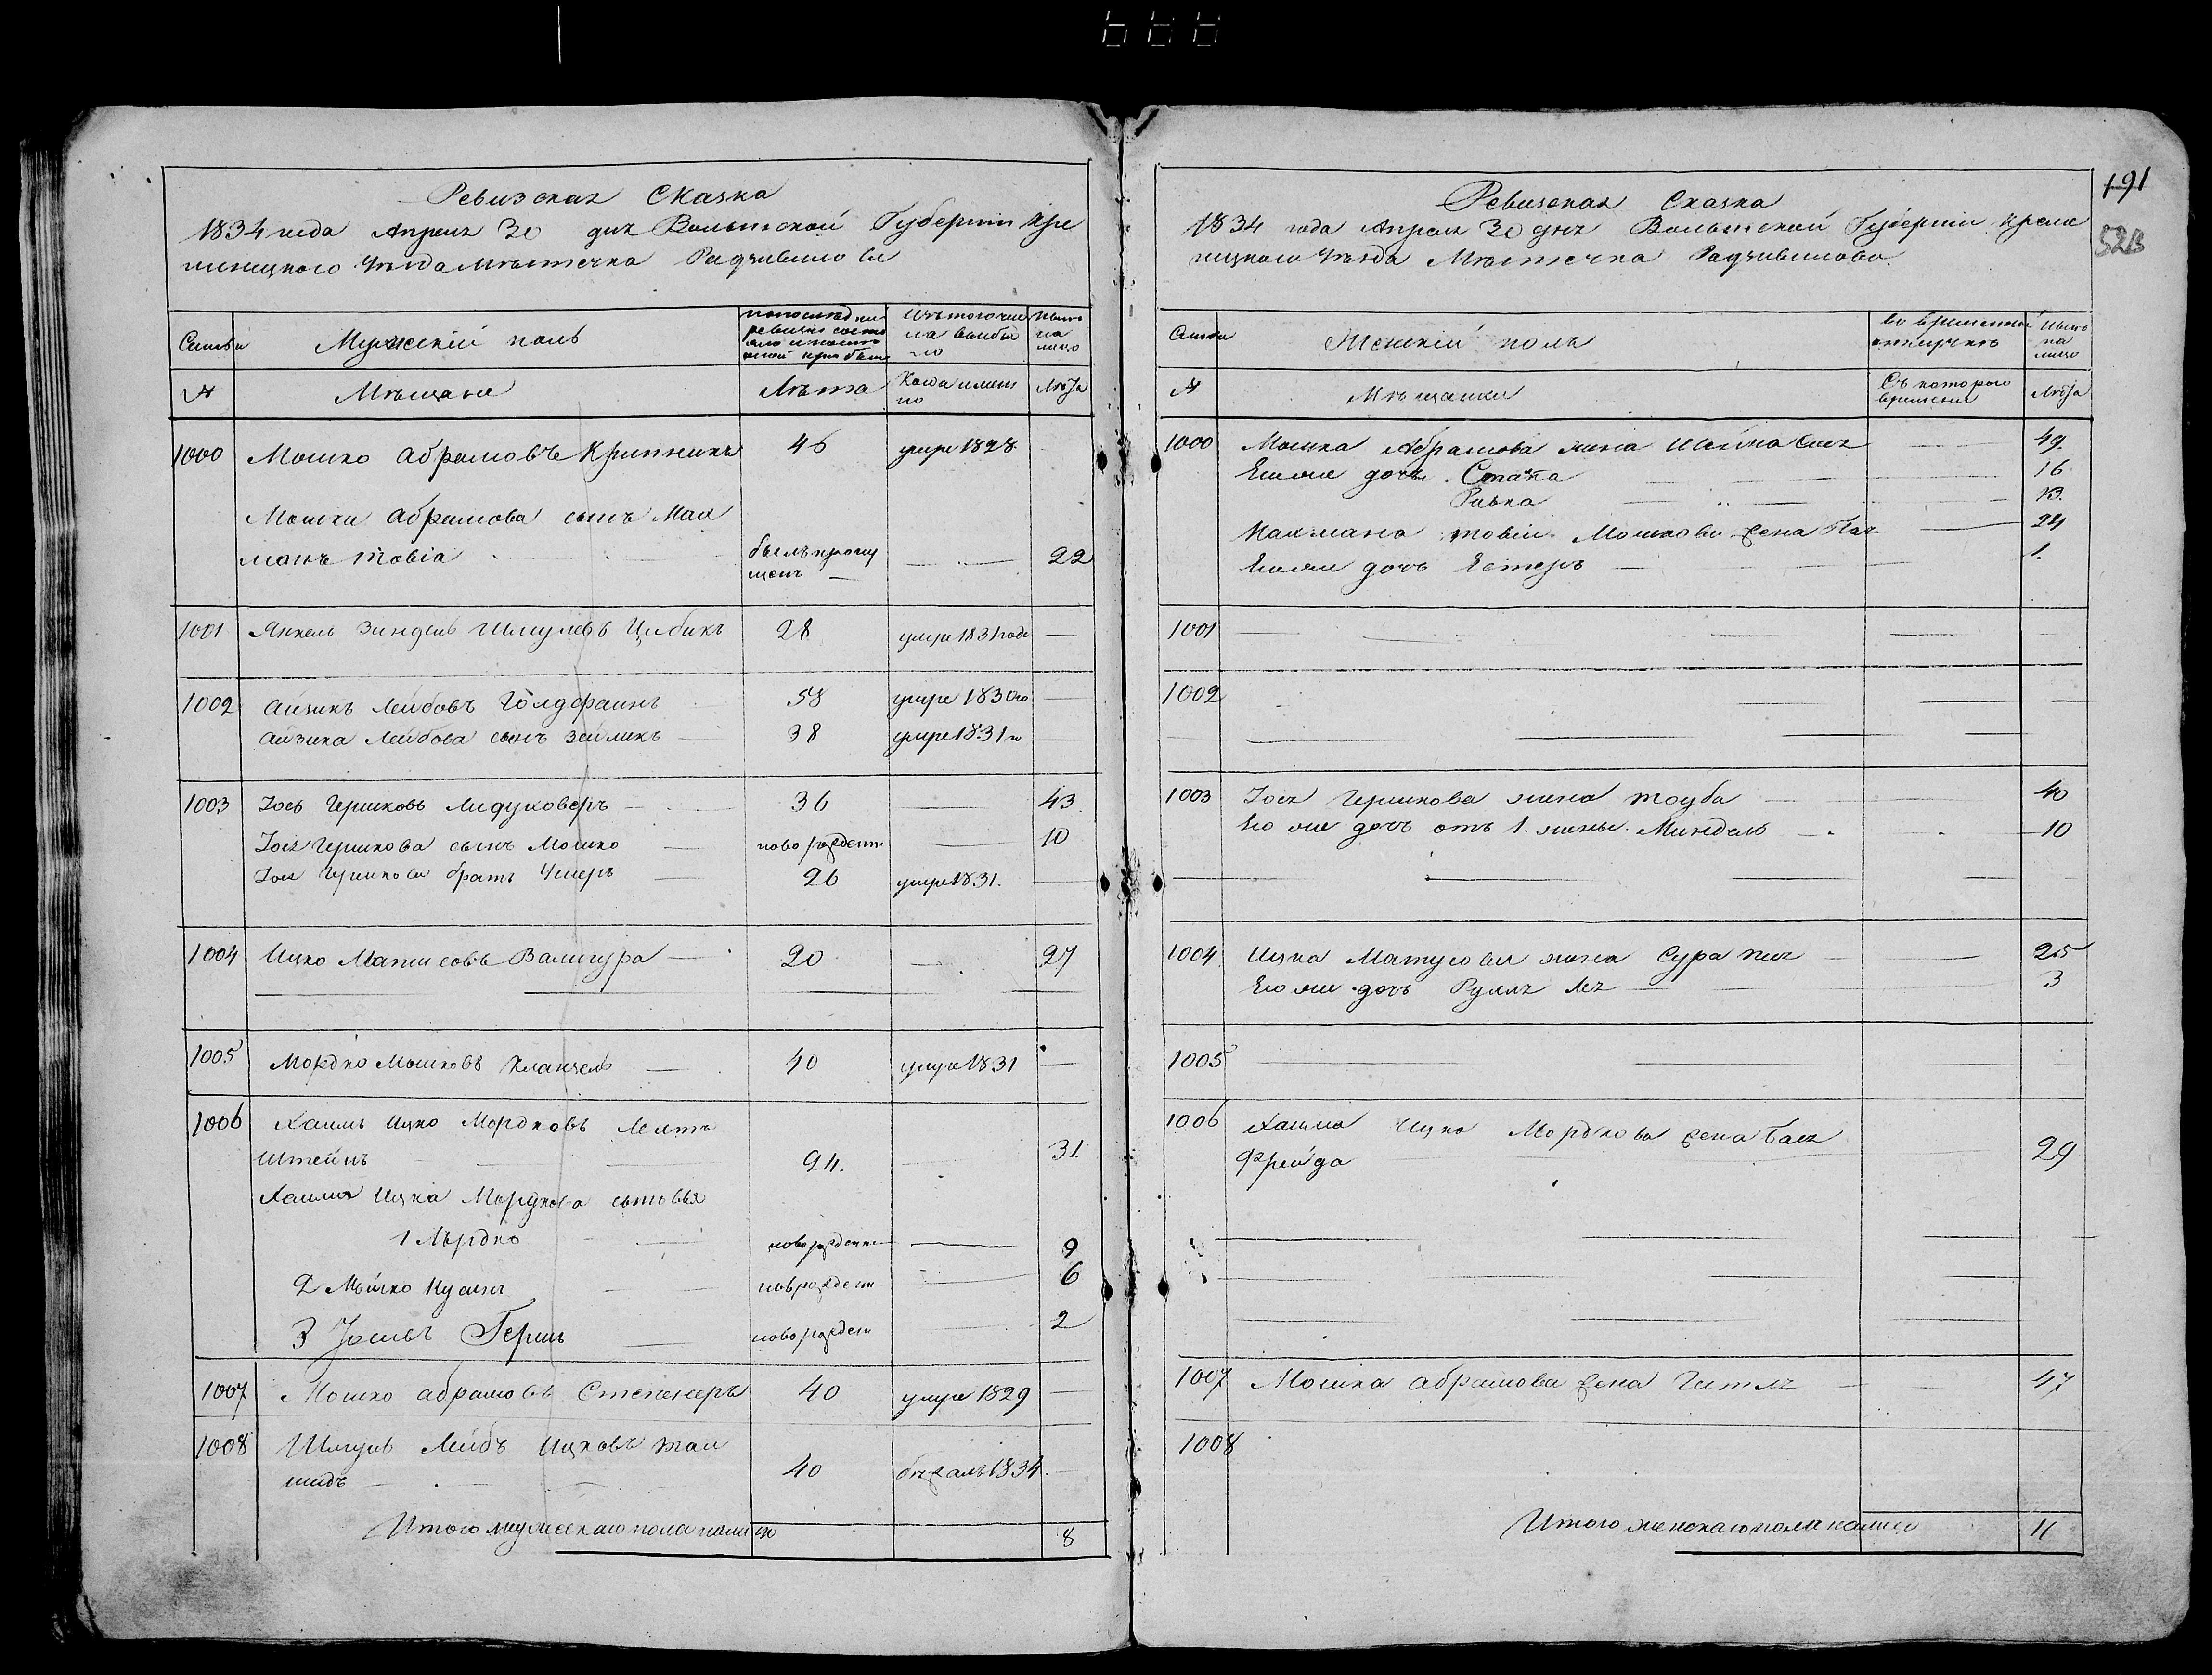 Ревизская Сказка
1834 года Апреля 30 дня Волынской Губернии Кре
менецкого Уѣзда Мѣстечка Радзивилова
Семьи
Мужескій полъ
по последней
ревизіи состо
яло и после
оной прибыло
Изъ того чис
ла выбы
ло
Нынѣ
на
лицо
№
Мѣщане
Лѣта
Когда имен
но
Лѣта
1000 Мошко Абрамовъ Крипникъ 45 умре 1828
Мошки Абрамова сынъ Нах
манъ Товіа былъ пропу 22
щенъ
1001 Янкель Зиндель Шмулевъ Цибикъ 28 умре 1831 года —
1002 Айзикъ Лейбовъ Голдфаинъ 58 умре 1830 го —
Айзика Лейбова сынъ Зейликъ 38 умре 1831 го —
1003 Іось Гершковъ Лидуховеръ 36 — 43
Іося Гершкова сынъ Мошко новорожден — 10
Іося Гершкова братъ Ушеръ 26 умре 1831. —
1004 Ицко Матисовъ 20 — 27
1005 Мордко Мошковъ 40 умре 1831 —
1006 Хаимъ Ицко Мордковъ
Штейнъ 24. 31.
Хаима Ицка Мордкова сыновья
1 Мордко новорожденн — 9
2 Мошко Нусинъ новорожден 6
3 Іосивъ Гершъ новорожден 2
1007 Мошко Абрамовъ 40 умре 1829 —
1008 Шмуль Лейбъ Ицковъ
шидъ 40 бѣжалъ 1834. —
Итого мужескаго пола налицо 8
191
528
Ревизская Сказка
1834 года Апреля 30 дня Волынской Губерніи Креме
ницкого Уѣзда Мѣстечка Радзивилова
Семьи
Женскій полъ
во временной
отлучкѣ
Нынѣ
на
лицо
№
Мѣщанки
Съ которого
времени
Лѣта
1000 Мошка Абрамова жена Шейна 49.
Его же дочь. 16
Ривка 13.
Нахмана Товіи Мошкова жена 24
Его же дочь Естеръ 1.
1001
1002
1003 Іося Гершкова жена Тоуба 40
Его же дочь отъ 1. жены. Миндель 10
1004 Ицка Матусова жена Сура 25
Его же дочь Рухля Лея 3
1005
1006 Хаима Ицка Мордкова жена Бася
Фрейда 29
1007 Мошка Абрамова жена Гитля 47
1008
Итого женскаго пола налицо 11